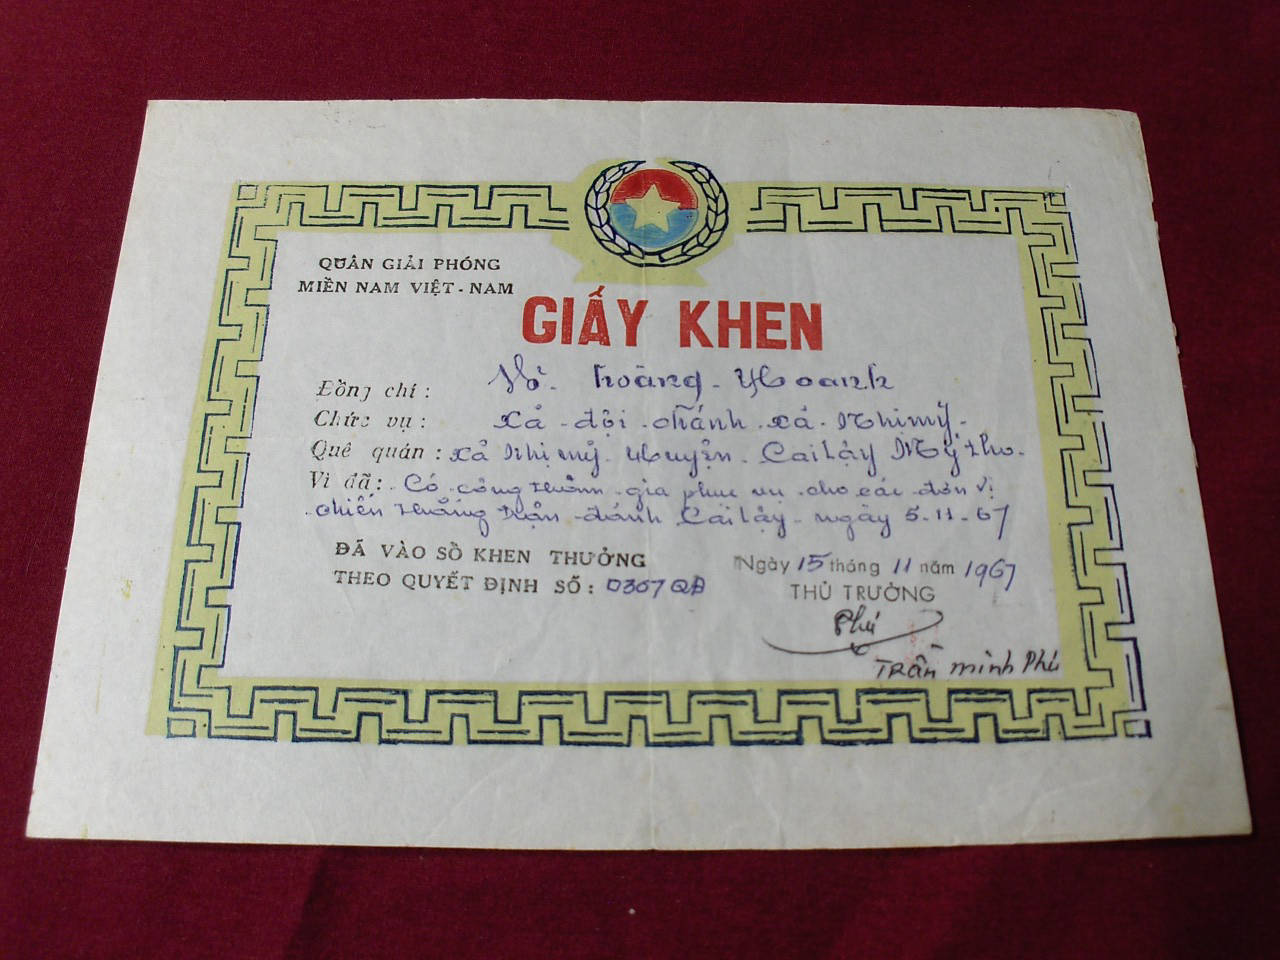 QUÂN GIẢI PHÓNG
MIỀN NAM VIỆT - NAM
GIẤY KHEN
Đồng chí : Võ - hoàng - Hoanh
Chức vụ : Xả - đội - chánh xả - Nhị mỹ.
Quê quán : xả Nhị mỹ huyện Cai lậy Mỹ tho.
Vì đã : Có công tham gia phục vụ cho các đơn vị
chiến thắng trận đánh Cai lậy - ngày 5-11-67
ĐÃ VÀO SỔ KHEN THƯỞNG
THEO QUYẾT ĐỊNH SỐ : 0367 QĐ
Ngày 15 tháng 11 năm 1967
THỦ TRƯỞNG
Phú
Trần minh Phú